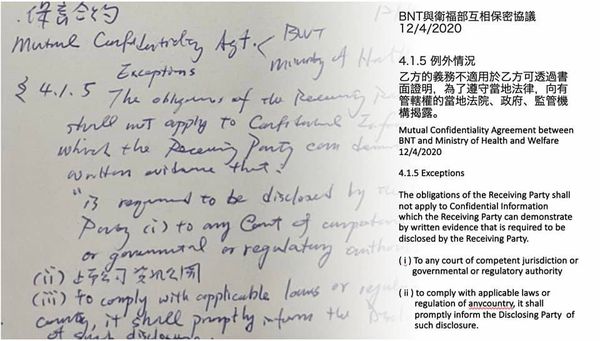 .保密合約
Mutual Confidentiality Agt. < BNT
Ministry of Healt
Exceptions
§ 4.1.5 The obligations of the Receiving P
shall not apply to Confidential Inf
which the Receiving Party can dem
written evidence that:
"is required to be disclosed by
Party (i) to any Court of competent
or governmental or regulatory autho
(ii) 上市公司資訊公開
(iii) to comply with applicable laws or regul
country, it shall promptly inform the Discl
of such disclosure.
BNT與衛福部互相保密協議
12/4/2020
4.1.5 例外情況
乙方的義務不適用於乙方可透過書
面證明，為了遵守當地法律，向有
管轄權的當地法院、政府、監管機
構揭露。
Mutual Confidentiality Agreement between
BNT and Ministry of Health and Welfare
12/4/2020
4.1.5 Exceptions
The obligations of the Receiving Party shall
not apply to Confidential Information
which the Receiving Party can demonstrate
by written evidence that is required to be
disclosed by the Receiving Party.
(i) To any court of competent jurisdiction or
governmental or regulatory authority
(ii) to comply with applicable laws or
regulation of anycountry, it shall
promptly inform the Disclosing Party of
such disclosure.